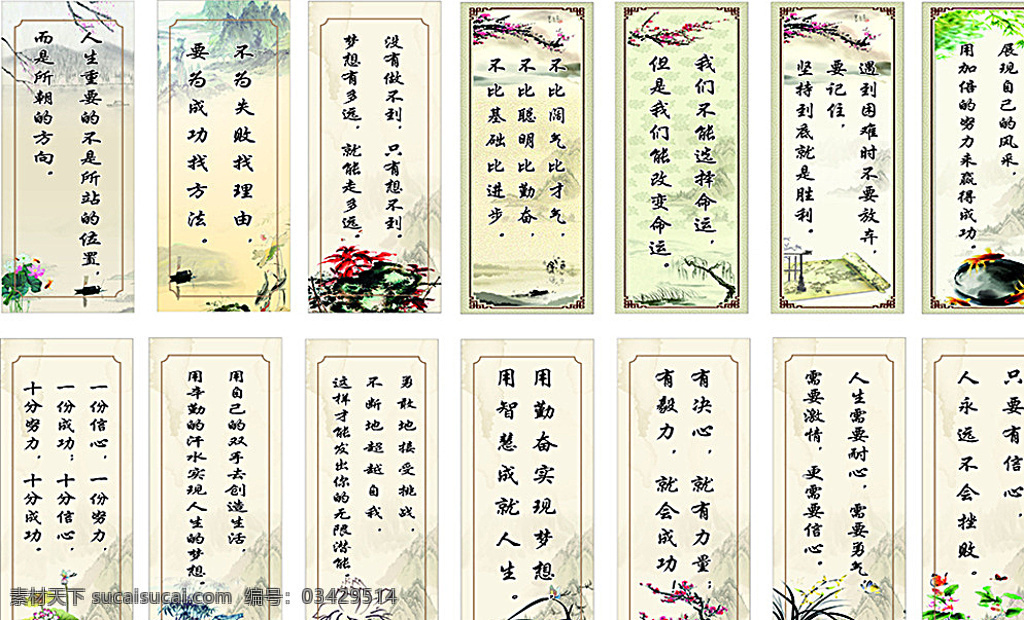 人生重要的不是所站的位置，
而是所朝的方向。
不为失败找理由，
要为成功找方法。
没有做不到，只有想不到。
梦想有多远，就能走多远。
不比阔气比才气，
不比聪明比勤奋，
不比基础比进步。
我们不能选择命运，
但是我们能改变命运。
遇到困难时不要放弃，
要记住，
坚持到底就是胜利。
展现自己的风采，
用加倍的努力来赢得成功。
一份信心，一份努力，
一份成功；十分信心，
十分努力，十分成功。
用自己的双手去创造生活，
用辛勤的汗水实现人生的梦想。
勇敢地接受挑战，
不断地超越自我，
这样才能发出你的无限潜能
用勤奋实现梦想
用智慧成就人生。
有决心，就有力量；
有毅力，就会成功
人生需要耐心，需要勇气
需要激情，更需要信心。
只要有信心，
人永远不会挫败。
素材天下 sucaisucai.com 编号：03429514